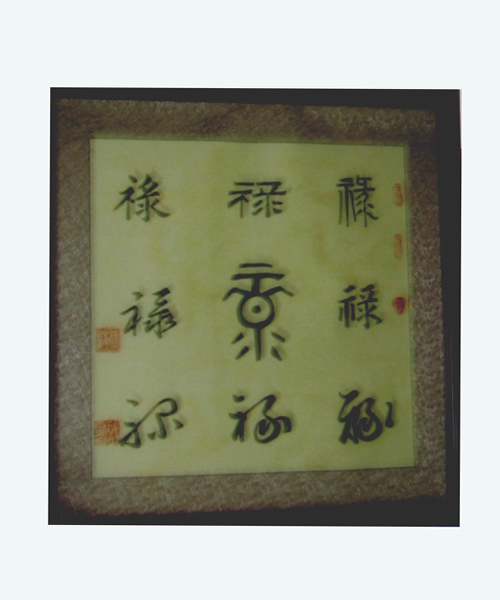 禄 禄 禄
禄 禄
禄 禄 禄